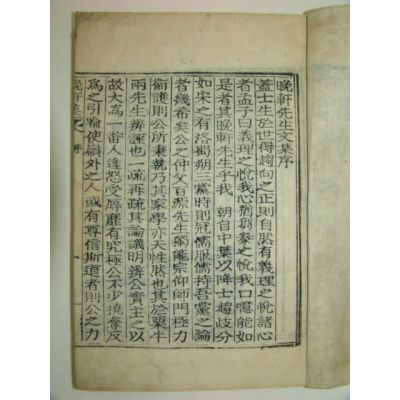 晩軒先生文集序
蓋士生於世得趨向之正則自然有義理之悅諸心
者孟子曰義理之悅我心猶芻豢之悅我口噫能如
是者其晩軒先生乎我
朝中葉以降士趨歧分
如宋之有洛蜀朔三黨時則冠儒服儒持吾黨之論
者幾希矣公之仲父百源先生獨能宗仰師門極力
衛護則公所秉執乃其家學亦天性然也其於栗牛
兩先生辨誣也一疏再疏其論議明辨公實主之以
故大爲一番人逢怒受辱靡有究極公不少撓奪反
爲之引喩使敎外之人或有尊信斯道者則公之力
晩軒集
序